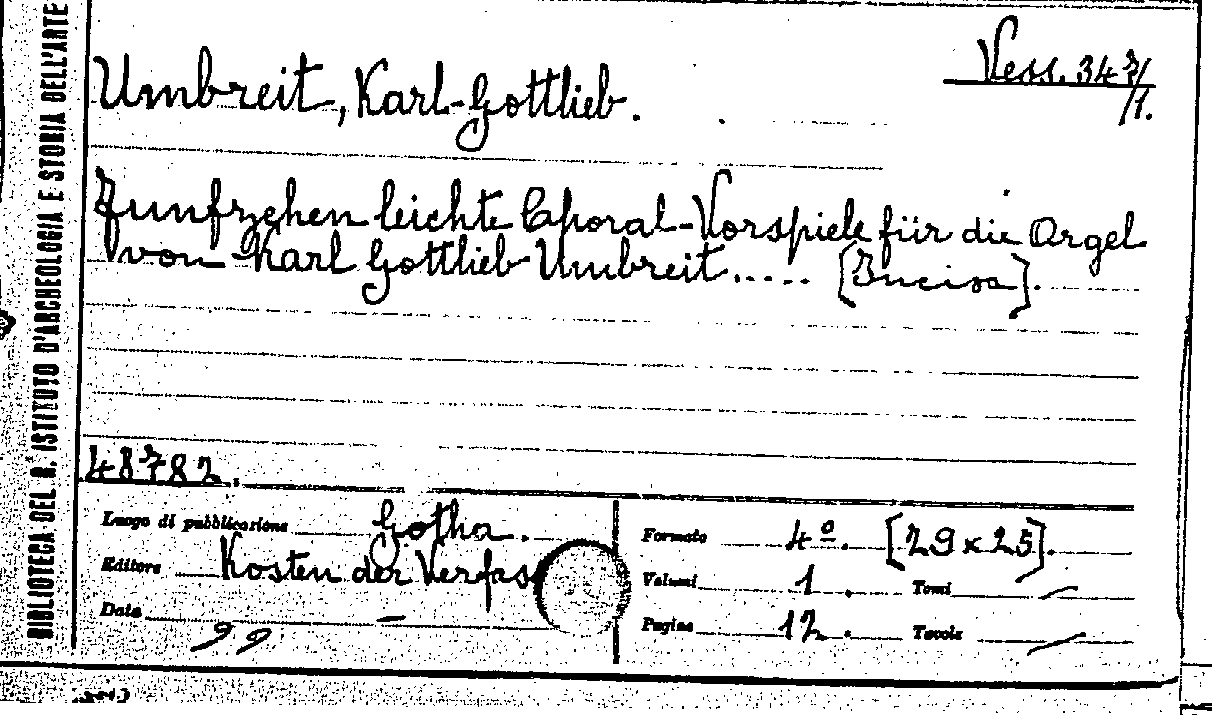 BIBLIOTECA DEL R. ISTITUTO D'ARCHEOLOGIA E STORIA DELL'ARTE
Vess. 347/
/1.
Umbreit, Karl-Gottlieb.
Funfzehen leichte Choral-Vorspiele für die Orgel
von Karl Gottlieb Umbreit..... [Incisa].
48782.
Luogo di pubblicazione Gotha.
Editore Kosten der Verfas
Data —
99
Formato 4º. [29 x 25].
Volumi 1. Tomi /
Pagine 12. Tavole /